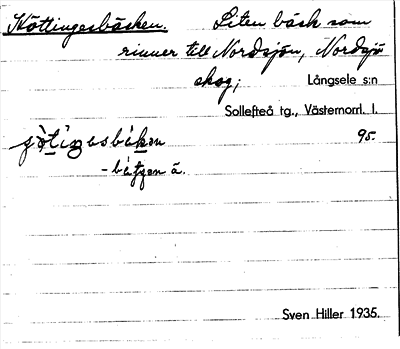 Höttingesbäcken. Liten bäck som
rinner till Nordsjön, Nordsjö
skog; Långsele s:n
Sollefteå tg., Västernorrl. l.
95.
- bétꞩen ä.
Sven Hiller 1935.